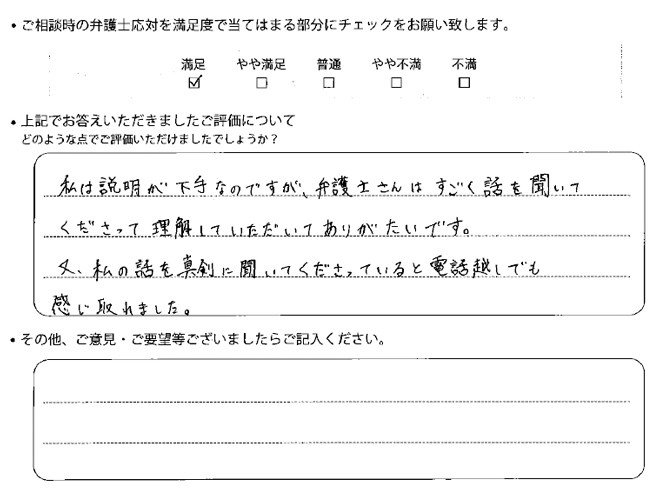 • ご相談時の弁護士応対を満足度で当てはまる部分にチェックをお願い致します。
満足 やや満足 普通 やや不満 不満
☑ ☐ ☐ ☐ ☐
• 上記でお答えいただきましたご評価について
どのような点でご評価いただけましたでしょうか？
私は説明が下手なのですが、弁護士さんはすごく話を聞いて
くださって理解していただいてありがたいです。
又、私の話を真剣に聞いてくださっていると電話越しでも
感じ取れました。
• その他、ご意見・ご要望等ございましたらご記入ください。